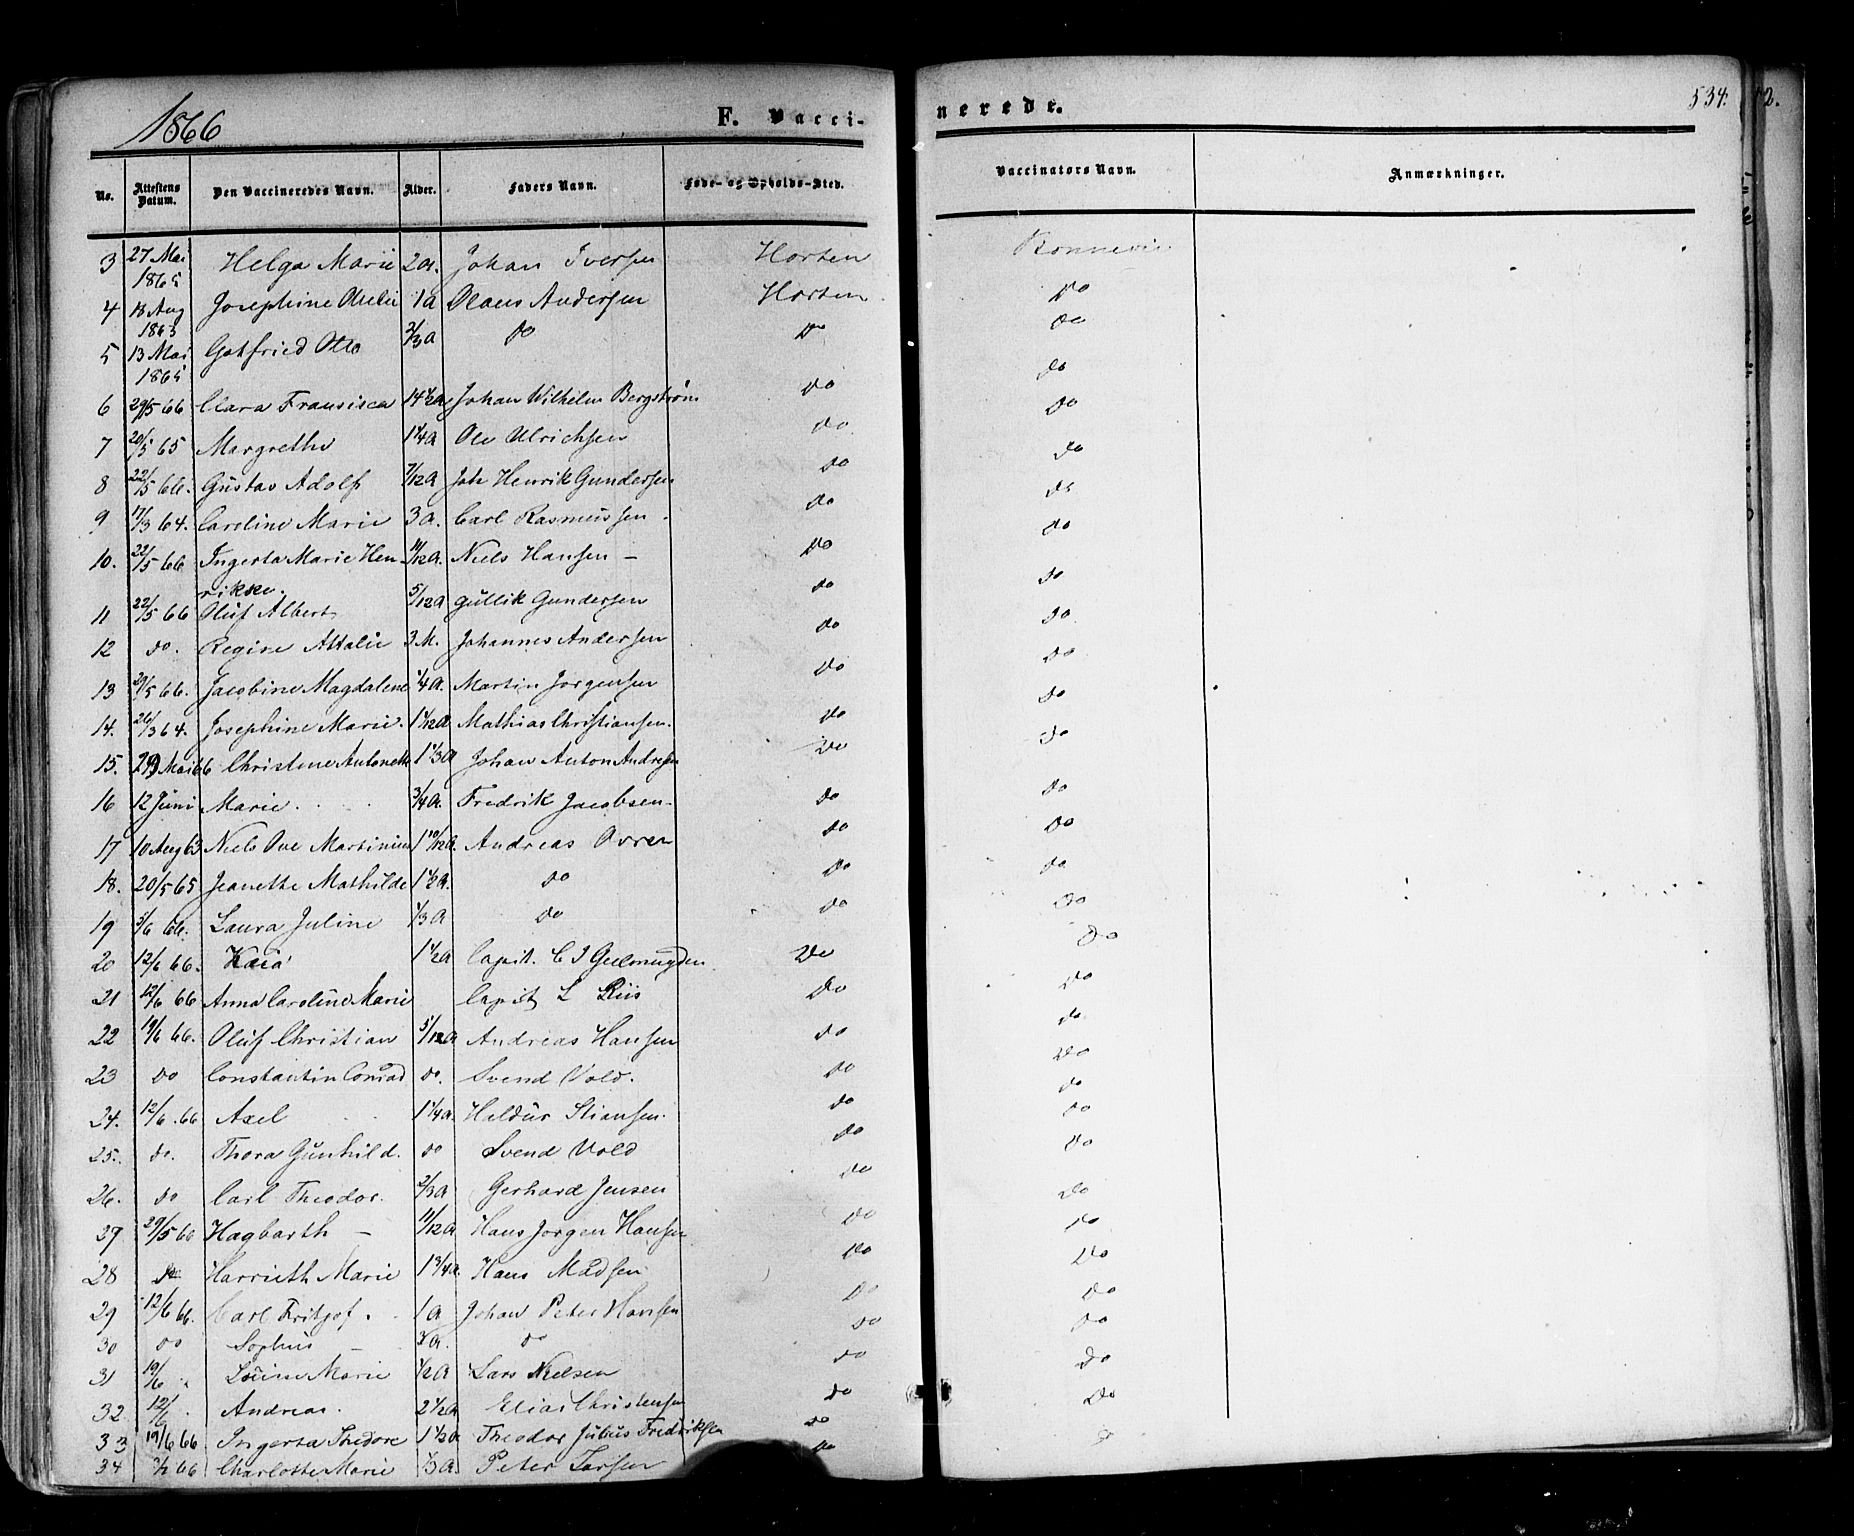 1866 F. Vacci- nerede. 534.
No. Attestens Datum. Den Vaccineredes Navn. Alder. Faders Navn. Føde- og Opholds-Sted. Vaccinators Navn. Anmærkninger.
3 27 Mai 1865 Helga Marie 2 a. Johan Iversen Horten
4 Aug 1863 Josephine 1 a Olaus Andersen Horten Do
5 13 Mai 1865 Gotfried Otto 2/3 a Do Do Do
6 29/5 66 Clara Fransisca 14 1/2 a Johan Wilhelm Bergstrøm Do Do
7 20/5 65 Margrethe 1 1/4 a Ole Ulrichsen Do Do
8 22/5 66. Gustav Adolf 7/12 a Joh Henrik Gundersen Do Do
9 17/3 64. Caroline Marie 3 a. Carl Rasmussen. Do Do
10. 22/5 66 Ingerta Marie Hen- 11/12 a. Niels Hansen - Do Do
rikke.
11 22/5 66 Oluf Albert 5/12 a Gullik Gundersen Do Do
12 do. Regine Attalie 3 M. Johannes Andersen Do Do
13 29/5 66. Jacobine Magdalene 1/4 a. Martin Jørgensen Do Do
14. 26/3 64. Josephine Marie. 1 1/12 a Mathias Christiansen. Do Do
15. 29 Mai 66 Christine Antonette 1 1/3 a Johan Anton Andresen Do Do
16 12 Juni Marie. 3/4 a. Fredrik Jacobsen. Do Do
17 10 Aug 63 Niels Ove Martinius 1 10/12 a. Andreas Do Do
18. 20/5 65 Jeanette Mathilde 1 1/2 a. Do Do Do
19 5/6 66. Laura Juline 1/3 a Do Do Do
20 12/6 66. 1 1/2 a Capit. C J Do Do
21 12/6 66 Anna Caroline Marie Capit L Riis Do Do
22 19/6 66. Oluf Christian 5/12 a Andreas Hansen Do Do
23 Do Constantin Conrad do. Svend Vold. Do Do
24. 12/6 .66 Axel 1 1/4 a. Haldur Stiansen. Do Do
25. do. Thora Gunhild. do Svend Vold Do Do
26. do Carl Theodor. 2/3 a Gerhard Jensen Do Do
27 29/5 66 Hagbarth - 11/12 a Hans Jørgen Hansen Do Do
28 do Harrieth Marie 1 3/4 a. Hans Madsen Do Do
29 12/6 66. Carl Fritjof. 1 a Johan Peter Hansen Do Do
30 do Sophus - a. do Do Do
31 19/6 Lovise Marie 1/2 a Lars Nielsen Do Do
32 12/6 Andreas. 2 1/2 a Elias Christensen Do Do
33 19/6 66 Ingerta Thedore 1 1/2 a Theodor Julius Fredriksen Do
34 66 Charlotte Marie 1/3 a. Peter Do